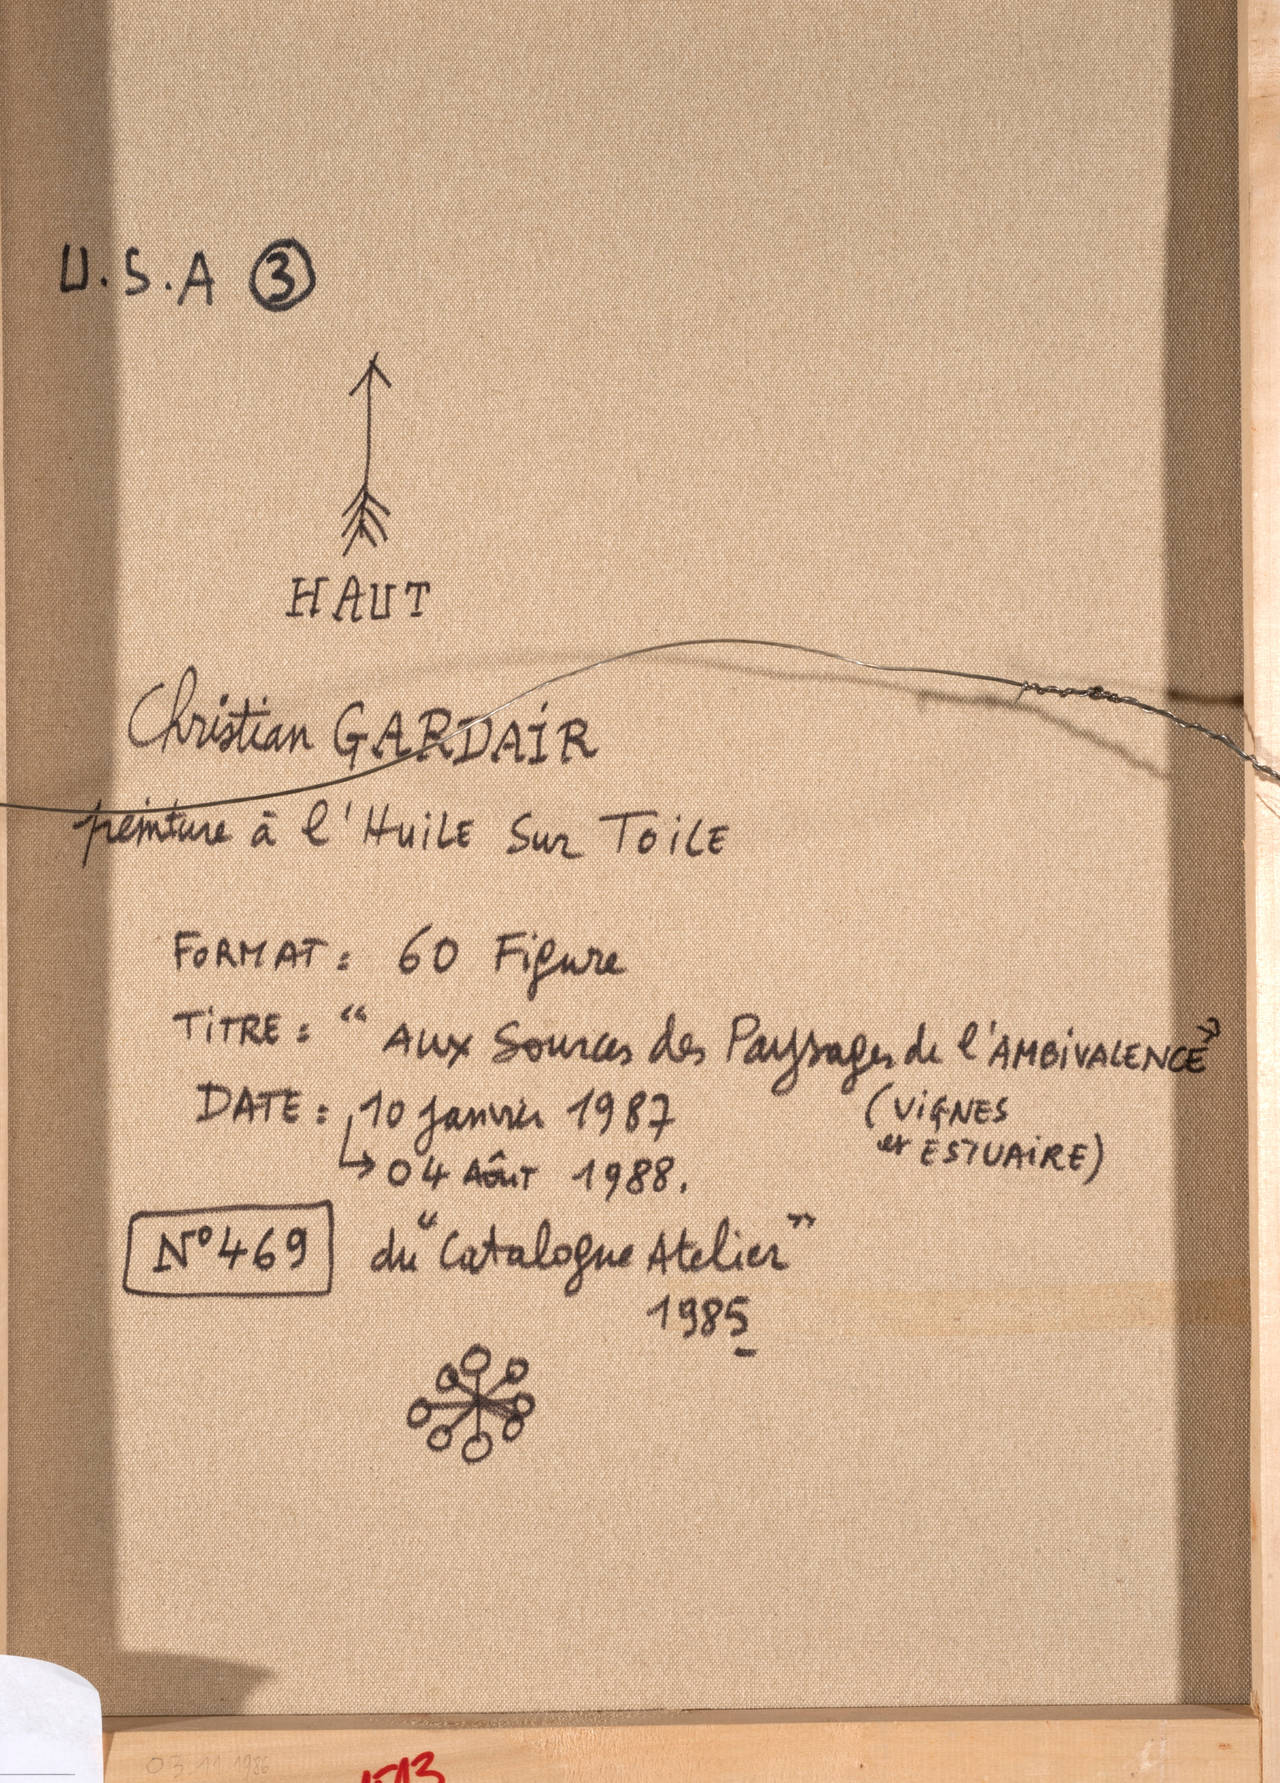 U.S.A ③
HAUT
Christian GARDAiR
peinture à l'HuiLE Sur ToiLE
FoRMAT : 60 Figure
TiTRE : “ AUX Sources des Paysages de l'AMBiVALENCE”
(ViGNES
et ESTUAiRE)
DATE : 10 Janvier 1987
↳ 04 Août 1988.
N°469 du “Catalogue Atelier”
1985
03.11.1986